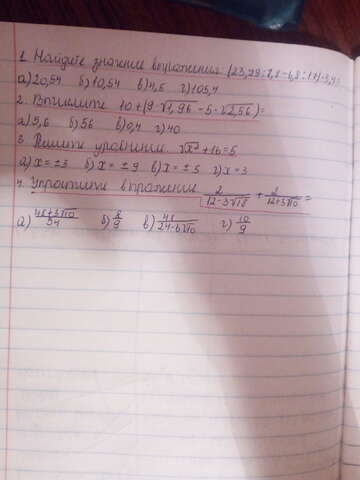 1. Найдите значение выражения (23,79:7,8-6,8:17)·3,4=
а) 20,54 б) 10,54 в) 4,5 г) 105,4
2. Вычислите 10+(9·√1,96-5·√2,56)=
а) 5,6 б) 56 в) 0,4 г) 40
3. Решите уравнение √x²+16=5
а) x=±3 б) x=±9 в) x=±5 г) x=3
4. Упростите выражение 2/12-3√18 + 2/12+3√10 =
а) 48+3√10/54 б) 8/9 в) 48/24-6√10 г) 10/9